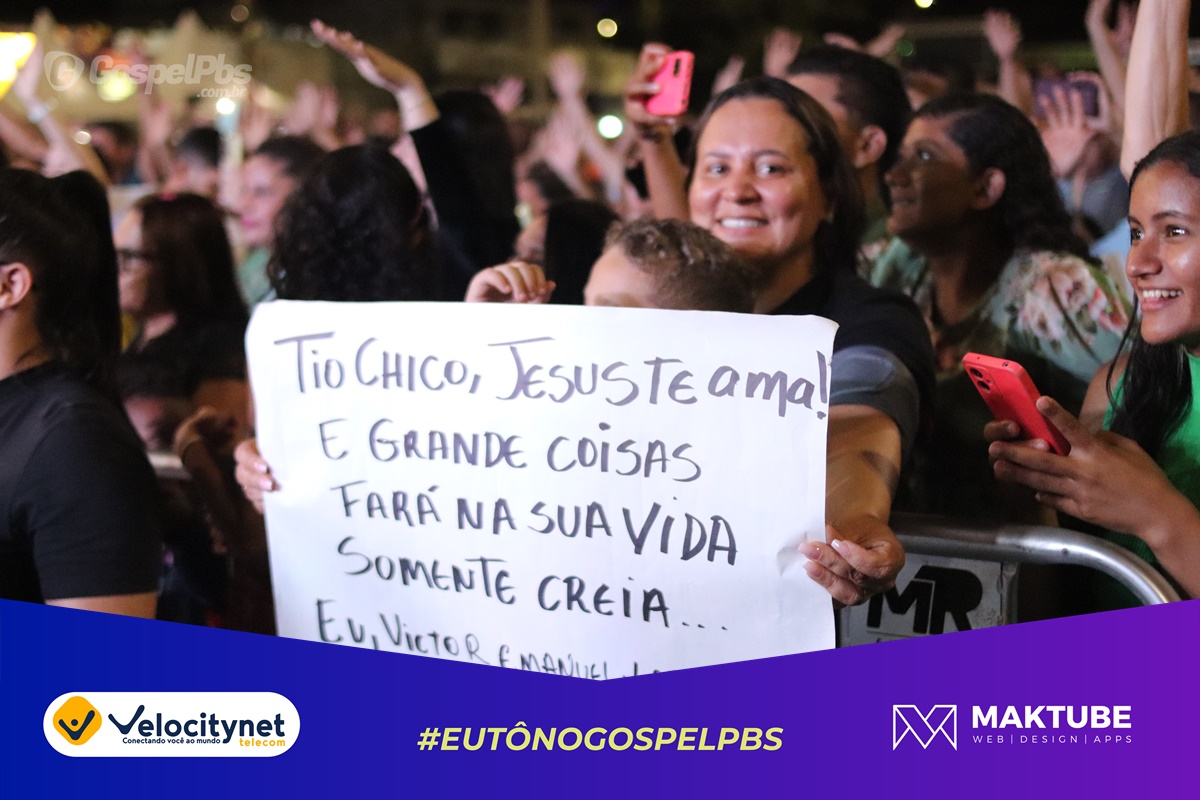 GospelPbs
.com.br
TIO CHICO, JESUS TE ama!
E GRANDE COISAS
FARÁ NA SUA VIDA
SOMENTE CREIA...
EU, VICTOR EMANUEL
MR
Velocitynet
telecom
Conectando você ao mundo
#EUTÔNOGOSPELPBS
MAKTUBE
WEB | DESIGN | APPS